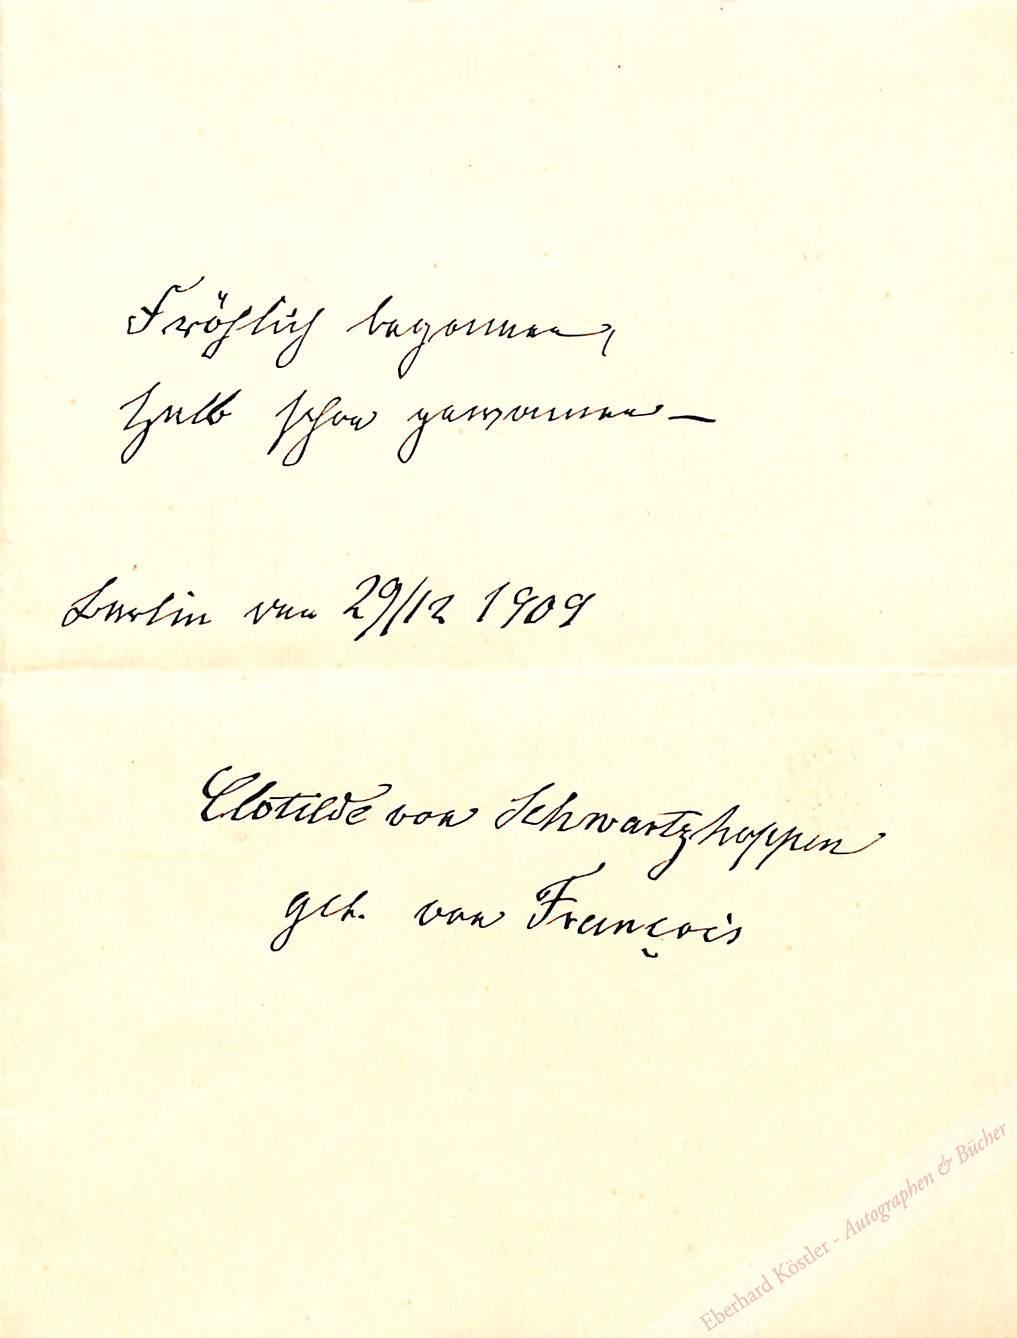 Fröhlich begonnen,
halb schon gewonnen —
Berlin den 29/12 1909
Clotilde von Schwartzkoppen
geb. von François
Eberhard Köstler - Autographen & Bücher